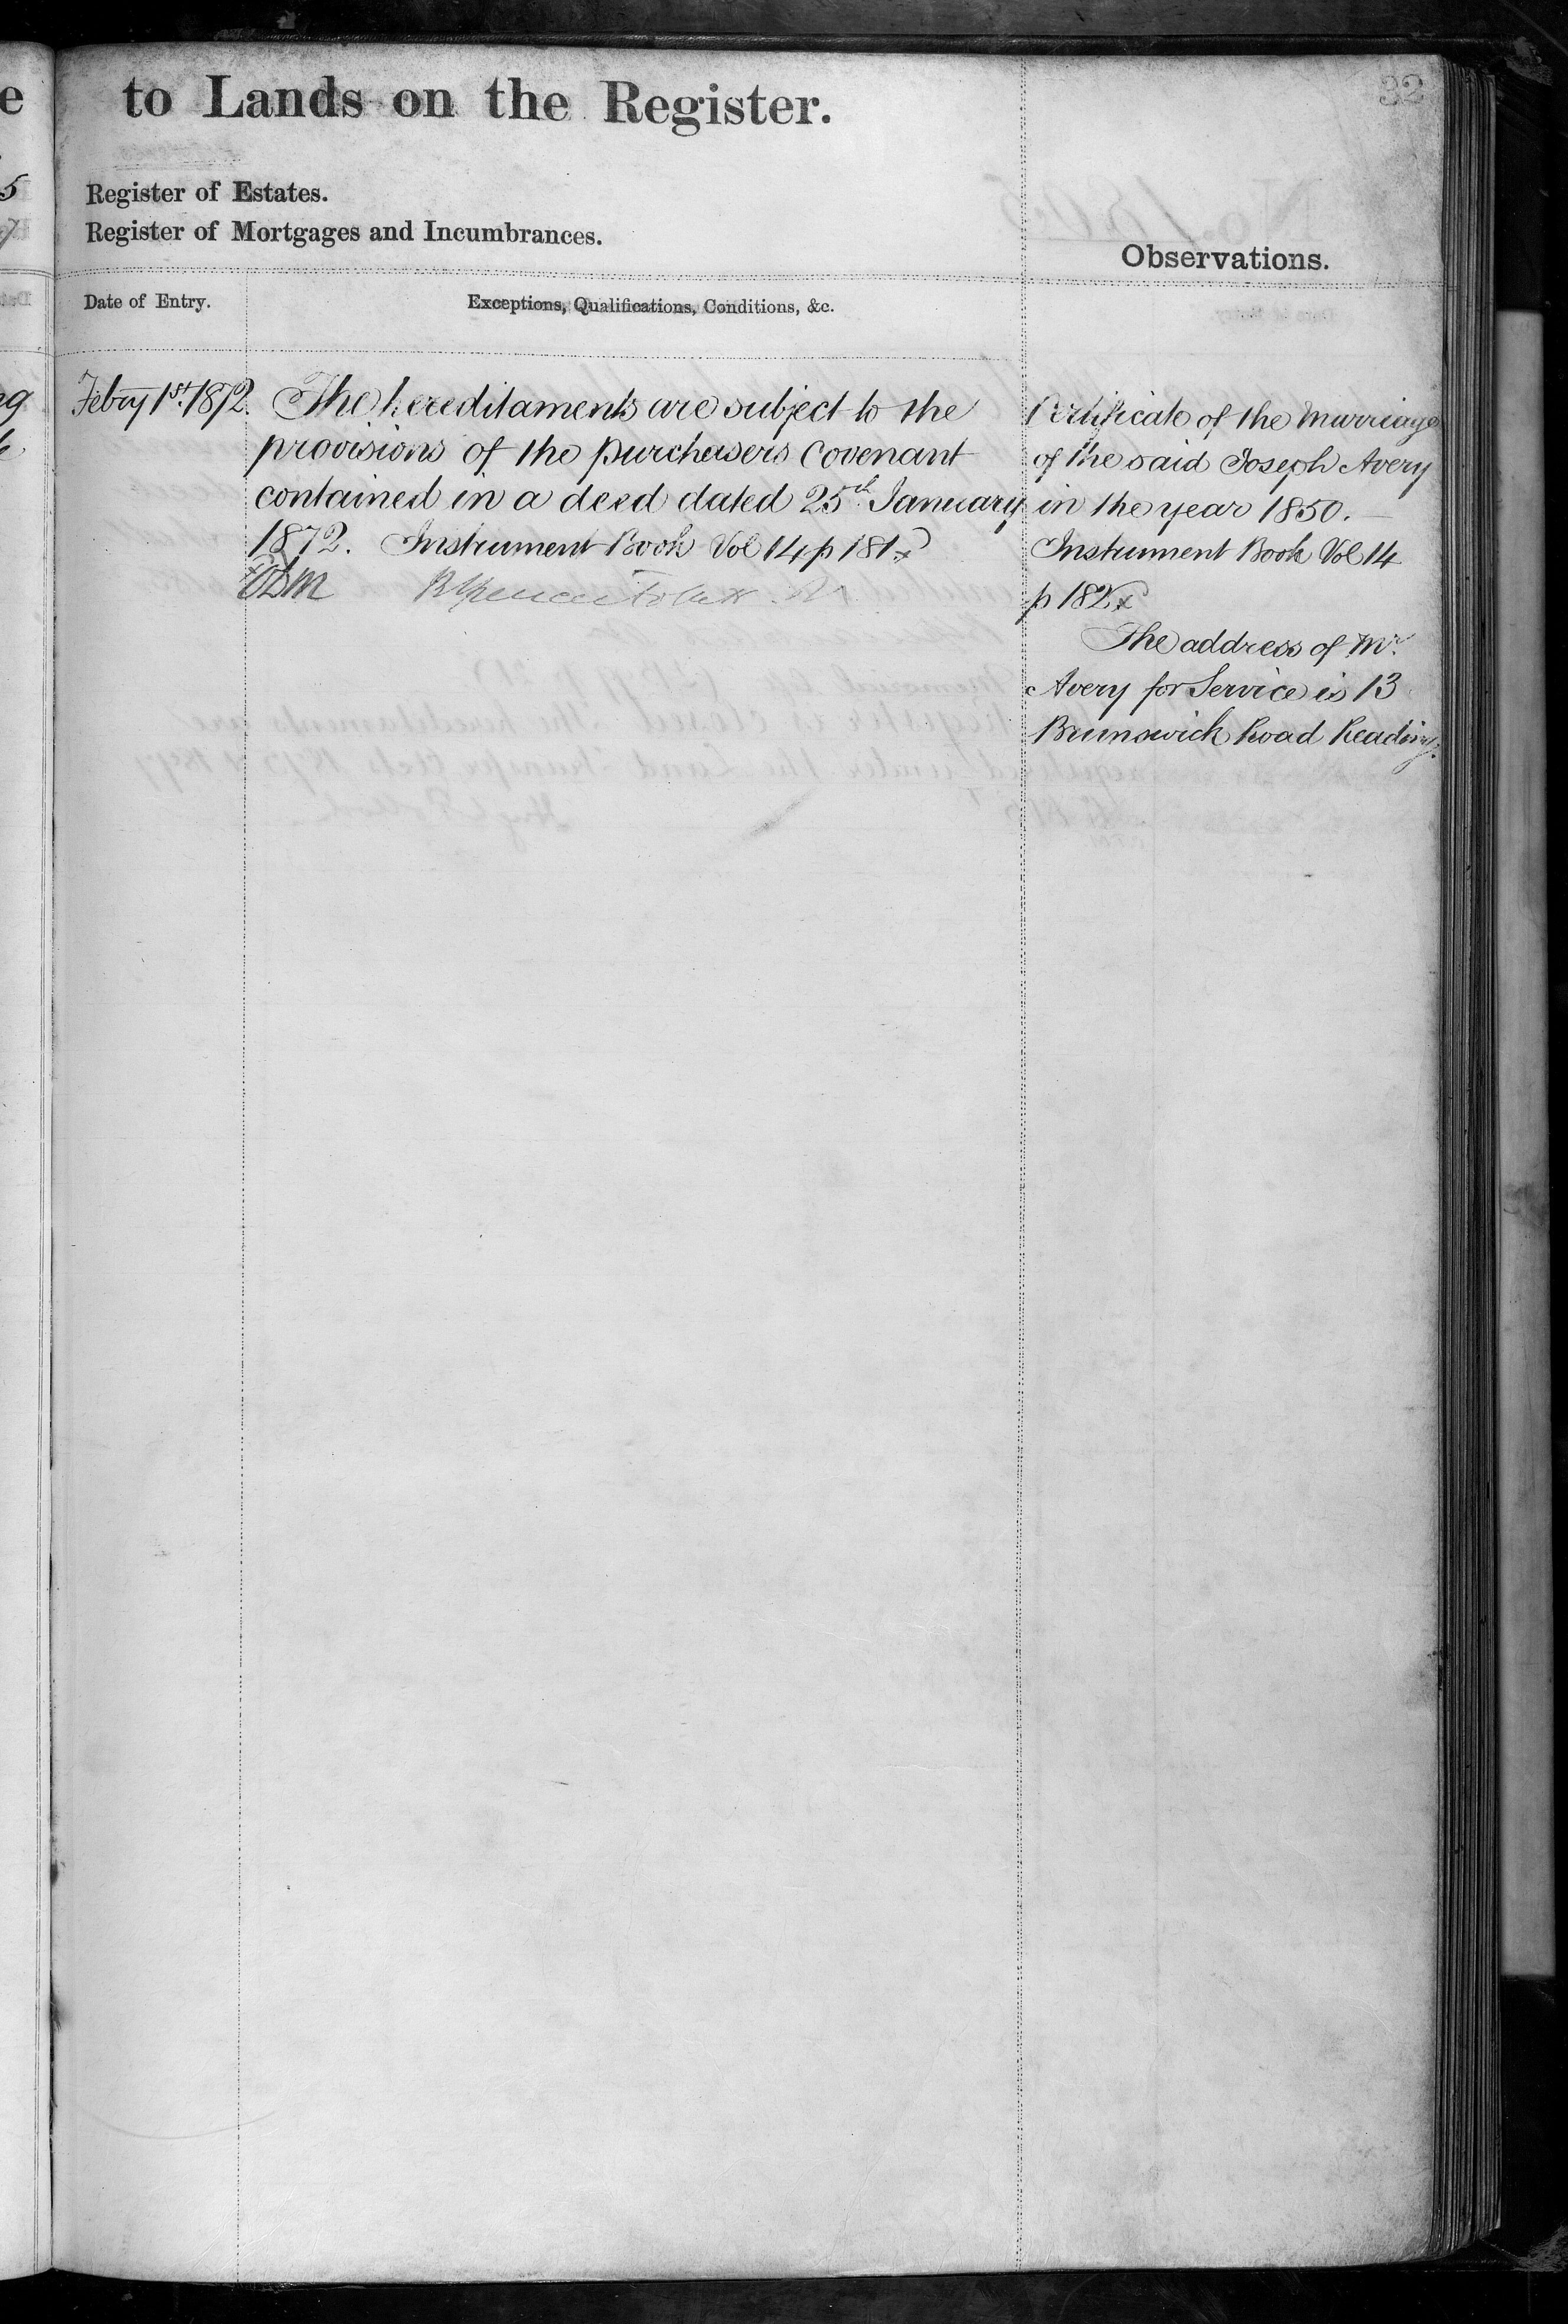 to Lands on the Register.
32
Register of Estates.
Register of Mortgages and Incumbrances.
Observations.
Date of Entry.
Exceptions, Qualifications, Conditions, &c.
Febry 1st. 1872.
The hereditaments are subject to the
provisions of the purchasers covenant
contained in a deed dated 25th January
1872. Instrument Book Vol 14 p 181
Certificate of the Marriage
of the said Joseph Avery
in the year 1850.
Instrument Book Vol 14
p 182
The address of Mr.
Avery for Service is 13
Brunswick Road Reading.